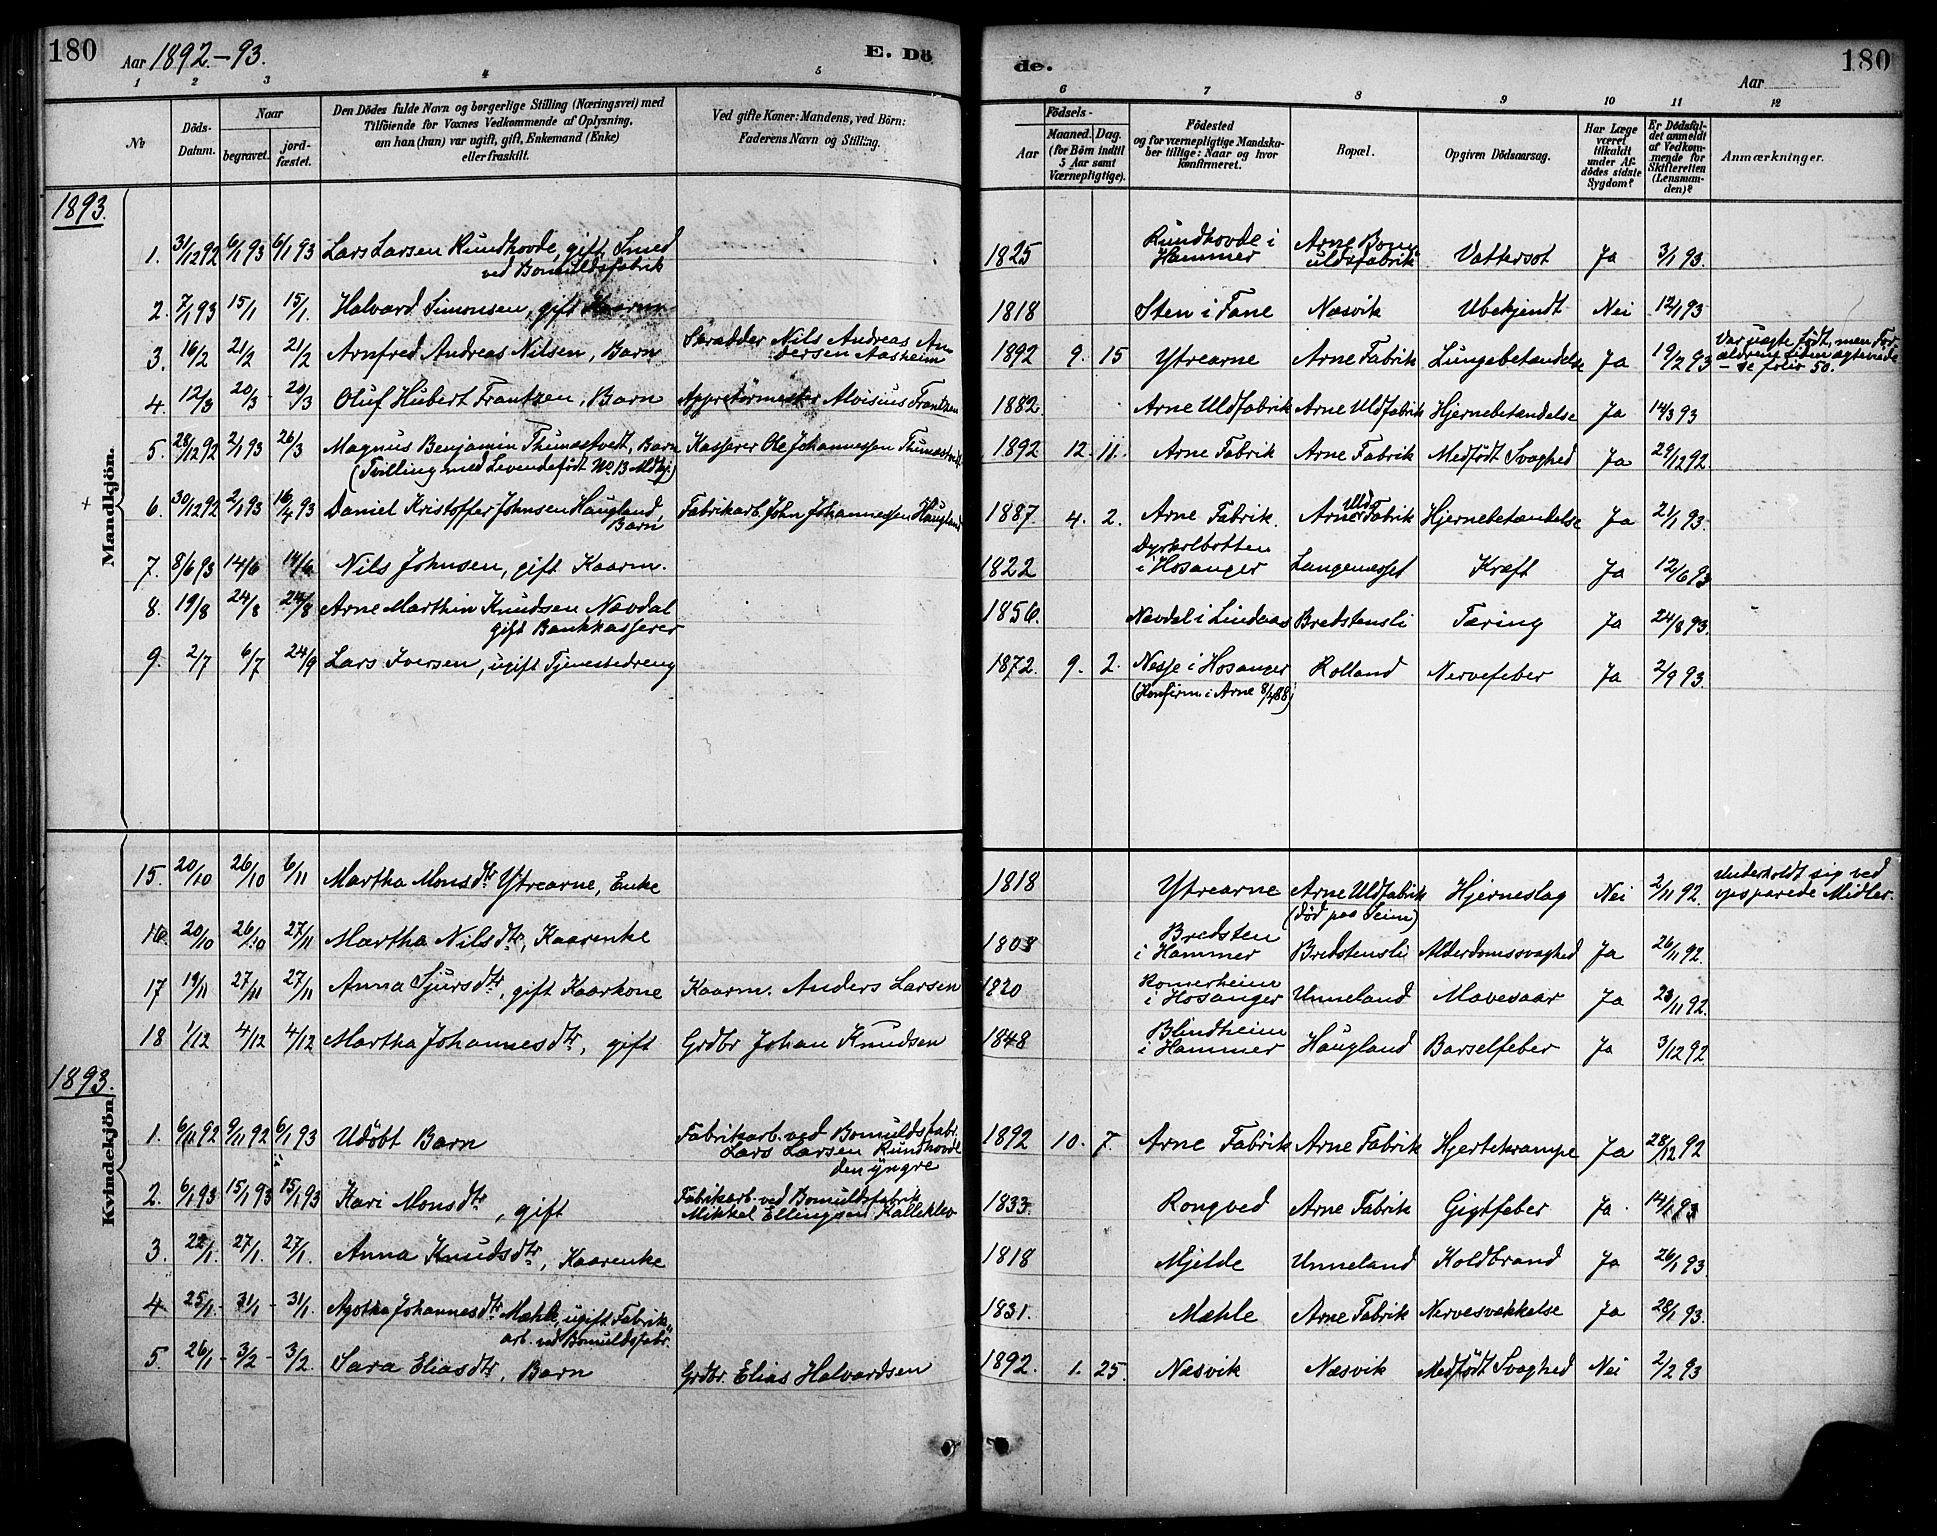 180 Aar 1892.-93. E. Dö
1 2 3 4 5
No
Döds-Datum.
Naar
begravet.
jord-fæstet.
Den Dödes fulde Navn og borgerlige Stilling (Næringsvei) med
Tilföiende for Voxnes Vedkommende af Oplysning,
om han (hun) var ugift, gift, Enkemand (Enke)
eller fraskilt.
Ved gifte Koner: Mandens, ved Börn:
Faderens Navn og Stilling.
de. Aar 180
6 7 8 9 10 11 12
Födsels-
Aar
Maaned. Dag.
(for Börn indtil
5 Aar samt
Værnepligtige).
Födested
og for værnepligtige Mandska-
ber tillige: Naar og hvor
konfirmeret.
Bopæl.
Opgiven Dödsaarsag.
Har Læge
været
tilkaldt
under Af-
dödes sidste
Sygdom?
Er Dödsfal-
det anmeldt
af Vedkom-
mende for
Skifteretten
(Lensman-
den)?
Anmærkninger.
1893.
Mandkjön.
1. 31/12 92 6/1 93 6/1 93 Lars Larsen Rundhovde, gift Smed
ved Bomuldsfabrik
1825 Rundhovde i
Hammer
Arne Bom-
uldsfabrik
Vattersot Ja 3/1 93.
2. 7/1 93 15/1 15/1. Halvard Simonsen, gift Kaarm
1818 Sten i Fane Næsvik Ubekjendt Nei 12/1 93
3. 16/2 21/2 21/2 Arnfred Andreas Nilsen, Barn Skrædder Nils Andreas An-
dersen Aasheim
1892 9. 15 Ytrearne Arne Fabrik Lungebetændelse Ja 19/2 93
Var uægte født, men For-
ældrene siden ægteviede
- se folio 50.
4. 12/3 20/3 20/3 Oluf Hubert Frantzen, Barn Appretörmester Aloisius Frantzen
1882 Arne Uldfabrik Arne Uldfabrik Hjernebetændelse Ja 14/3 93
5. 28/12 92 2/1 93 26/3 Magnus Benjamin Thunestvedt, Barn Kasserer Ole Johannessen Thunestvedt
(Tvilling med Levendefödt No 13 Mdkj)
1892 12. 11. Arne Fabrik Arne Fabrik Medfödt Svaghed Ja 29/12 92.
+ 6. 30/12 92 2/1 93 16/4 93 Daniel Kristoffer Johnsen Haugland, Fabrikarb. John Johannessen Haugland
Barn
1887. 4. 2. Arne Fabrik. Arne Uld Fabrik Hjernebetændelse Ja 2/1 93.
7. 8/6 93 14/6 14/6 Nils Johnsen, gift Kaarm.
1822 Dyrkolbotten
i Hosanger Langenesset Kræft Ja 12/6 93
8. 19/8 24/8 24/8 Arne Marthin Knudsen Nævdal
gift Bankkasserer
1856. Nævdal i Lindaas Bredstensli Tæring Ja 24/8 93.
9. 2/7 6/7 24/9 Lars Iversen, ugift Tjenestedreng
1872. 9. 2. Nesje i Hosanger
(Konfirm. i Arne 8/4 88)
Rolland Nervefeber Ja 2/9 93.
Kvindekjön.
15. 20/10 26/10 6/11 Martha Monsdtr Ytrearne, Enke
1818 Ytrearne Arne Uldfabrik
(död paa Seim)
Hjerneslag Nei 2/11 92.
Underholdt sig ved
opsparede Midler.
16. 20/10 26/10 27/11 Martha Nilsdtr, Kaarenke
1803 Bredsten
i Hammer Bredstensli Alderdomssvaghed Ja 26/11 92.
17 19/11 27/11 27/11 Anna Sjursdtr, gift Kaarkone Kaarm. Anders Larsen
1820 Romerheim
i Hosanger Unneland Mavesaar Ja 23/11 92.
18 1/12 4/12 4/12 Martha Johannesdtr, gift Grdbr Johan Knudsen
1848 Blindheim
i Hammer Haugland Barselfeber Ja 3/12 92
1893.
1. 6/11 92 9/11 92 6/1 93 Udöbt Barn Fabrikarb. ved Bomuldsfabr.
Lars Larsen Rundhovde
den yngre
1892 10. 7. Arne Fabrik Arne Fabrik Hjertekrampe Ja 28/12 92
2. 6/1 93 15/1 93 15/1 93 Kari Monsdtr, gift Fabrikarb. ved Bomuldsfabrik
Mikkel Ellingsen Kalleklev
1833. Rongved Arne Fabrik Gigtfeber Ja. 14/1 93
3. 22/1. 27/1. 27/1. Anna Knudsdtr, Kaarenke
1818 Mjelde Unneland Koldbrand Ja 26/1 93.
4 25/1. 31/1 31/1. Agotha Johannesdtr Mæhle, ugift Fabrik-
arb. ved Bomuldsfabr.
1831. Mæhle Arne Fabrik Nervesvækkelse Ja 28/1 93.
5. 26/1 3/2 3/2. Sara Eliasdtr, Barn Grdbr. Elias Halvardsen
1892. 1. 25. Næsvik Næsvik Medfödt Svaghed Nei 2/2 93